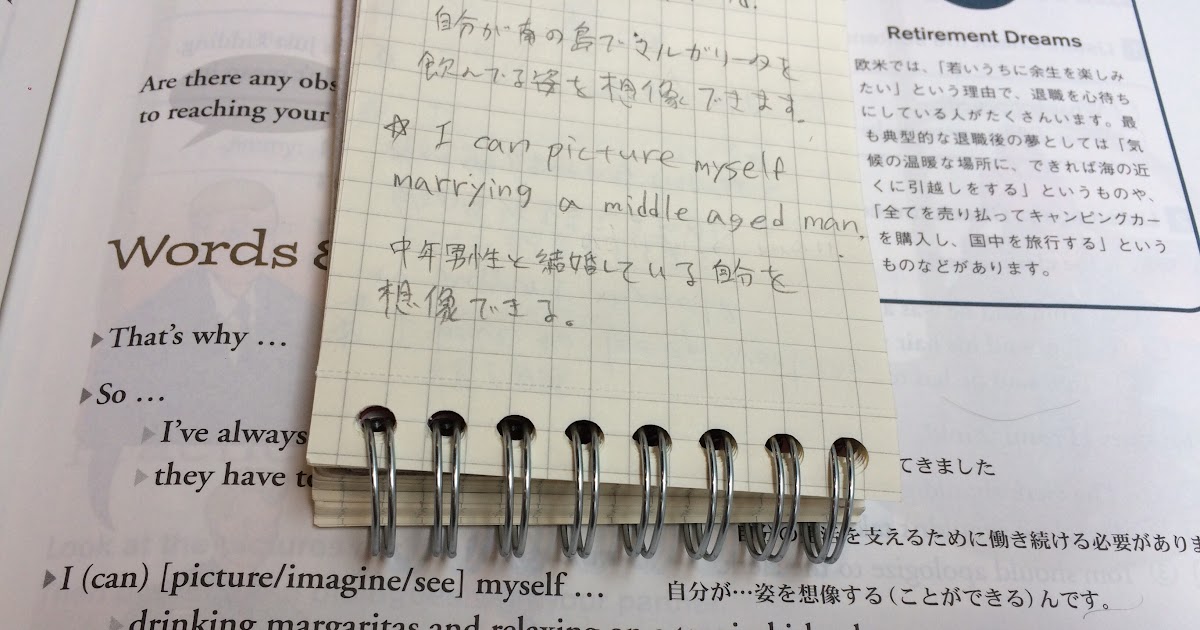 Are there any obs
to reaching your
Words &
▶That's why …
▶So …
▶I've always
▶they have to
▶I (can) [picture/imagine/see] myself …
▶drinking margaritas and relaxing on a tropical island
自分が南の島でマルガリータを
飲んでる姿を想像できます。
☆ I can picture myself
marrying a middle aged man.
中年男性と結婚している自分を
想像できる。
Retirement Dreams
欧米では、「若いうちに余生を楽しみ
たい」という理由で、退職を心待ち
にしている人がたくさんいます。最
も典型的な退職後の夢としては「気
候の温暖な場所に、できれば海の近
くに引越しをする」というものや、
「全てを売り払ってキャンピングカー
を購入し、国中を旅行する」という
ものなどがあります。
てきました
を支えるために働き続ける必要がありま
自分が…姿を想像する（ことができる）んです。